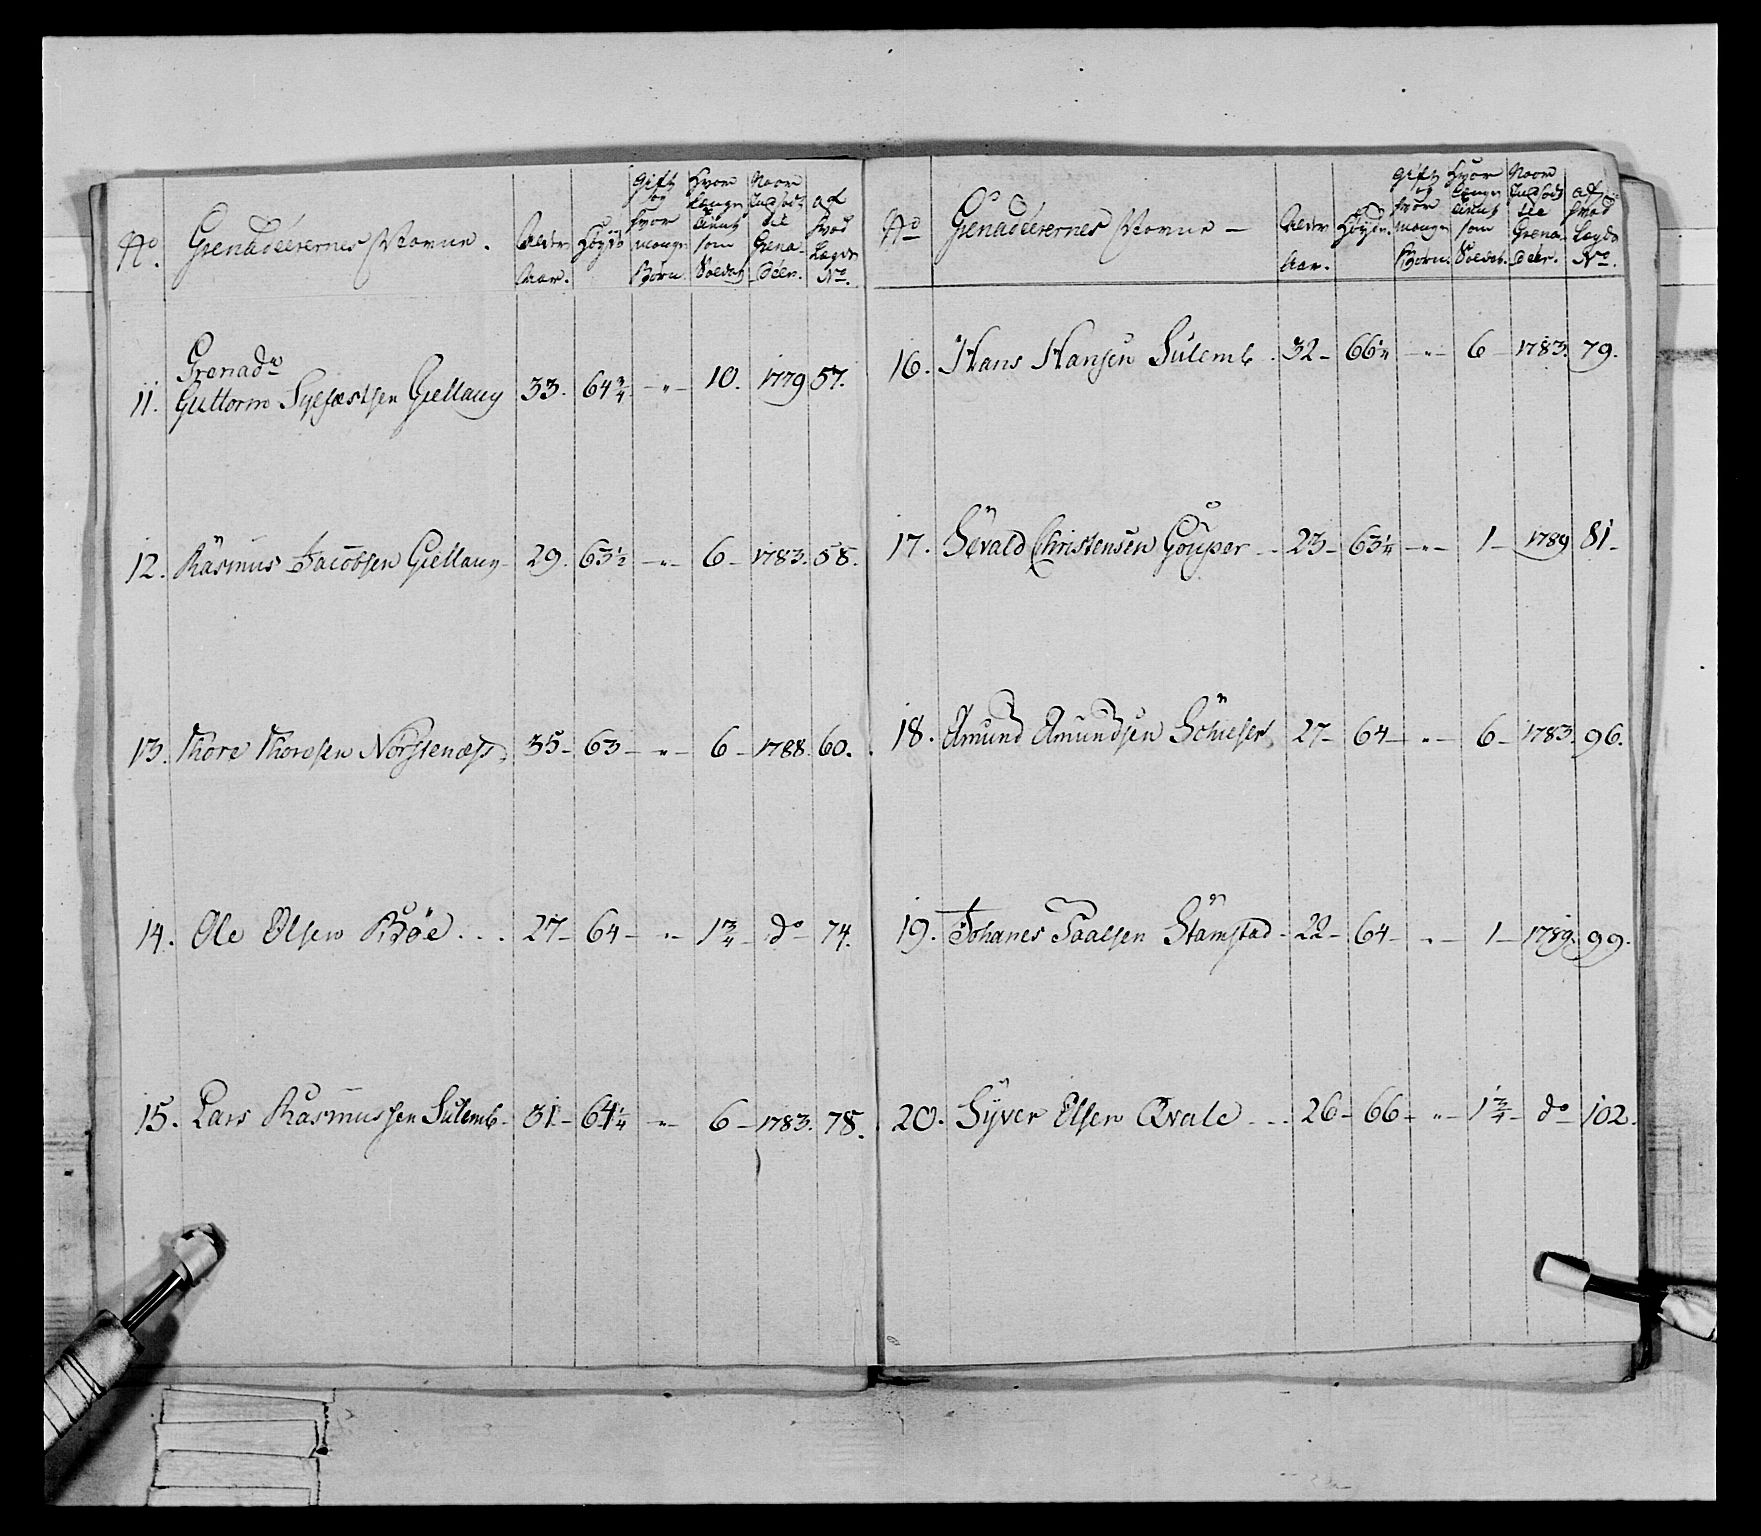 No. Grenadeerernes Navne. Alder Aar. Høyde Gift og hvor mange Børn. Hvor længe tient som Soldat Naar Indsadt til Grena- deer. af hvad Lægds No.
11. Grenadr
Guttorm Syefæstsen Giellum 33. 64¾ — " — 10. 1779 57.
12. Rasmus Jacobsen Giellum 29. 63½ — " — 6 — 1783. 58.
13. Thore Thoresen Norstenæss 35 — 63 — " — 6 — 1788. 60.
14. Ole Olsen Bøe . . . 27 — 64 — " — 1¾ — do — 74.
15. Lars Rasmussen Sulemb — 31 — 64¼ — " — 6 — 1783. 78.
No Grenadeerernes Navne — Alder Aar. Høyde. Gift og hvor mange Børn. Hvor længe tient som Soldat. Naar Indsadt til Grena- deer. af hvad Lægds No.
16. Hans Hansen Sulemb . 32 — 66¼ — " — 6 — 1783. 79.
17. Sevald Christensen . . 23 — 63¼ — " — 1 — 1789 81 —
18. Amund Amundsen 27 — 64 — " — 6 — 1783. 96.
19. Johanes Paalsen Stamstad — 22 — 64 — " — 1 — 1789. 99.
20. Syver Olsen Qvale . . . 26 — 66 — " — 1¾ — do — 102.